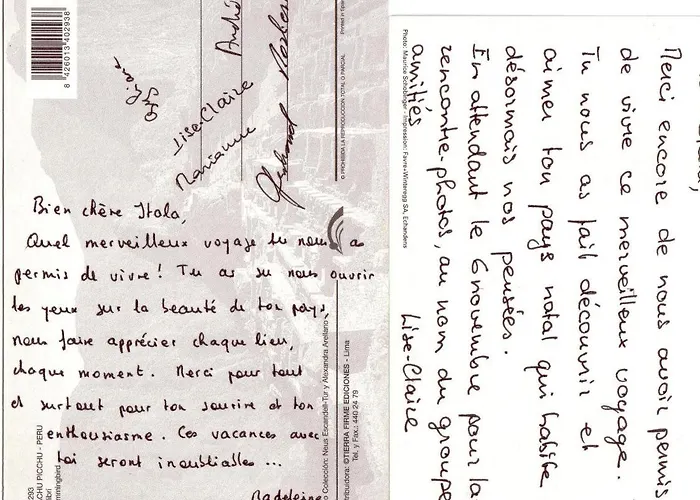 8 426013 402938
André
Lise-Claire
Marianne
Printed in Spain
© PROHIBIDA LA REPRODUCCION TOTAL O PARCIAL
Bien chère Itala,
Quel merveilleux voyage tu nous as
permis de vivre! Tu as su nous ouvrir
les yeux sur la beauté de ton pays,
nous faire apprécier chaque lieu,
chaque moment. Merci pour tout
et surtout pour ton sourire et ton
enthousiasme. Ces vacances avec
toi seront inoubliables ...
Madeleine
293
CHU PICCHU - PERU
ibrí
mmingbird
o Colección: Neus Escandell-Tur y Alexandra Arellano
tribuidora: ©TIERRA FIRME EDICIONES - Lima
Tel. y Fax.: 440 24 79
Merci encore de nous avoir permis
de vivre ce merveilleux voyage.
Tu nous as fait découvrir et
aimer ton pays natal qui habite
désormais nos pensées.
En attendant le 6 novembre pour la
rencontre-photos, au nom du groupe
amitiés
Lise-Claire
Photo: Maurice Schobinger - Impression: Favre+Winteregg SA, Echandens